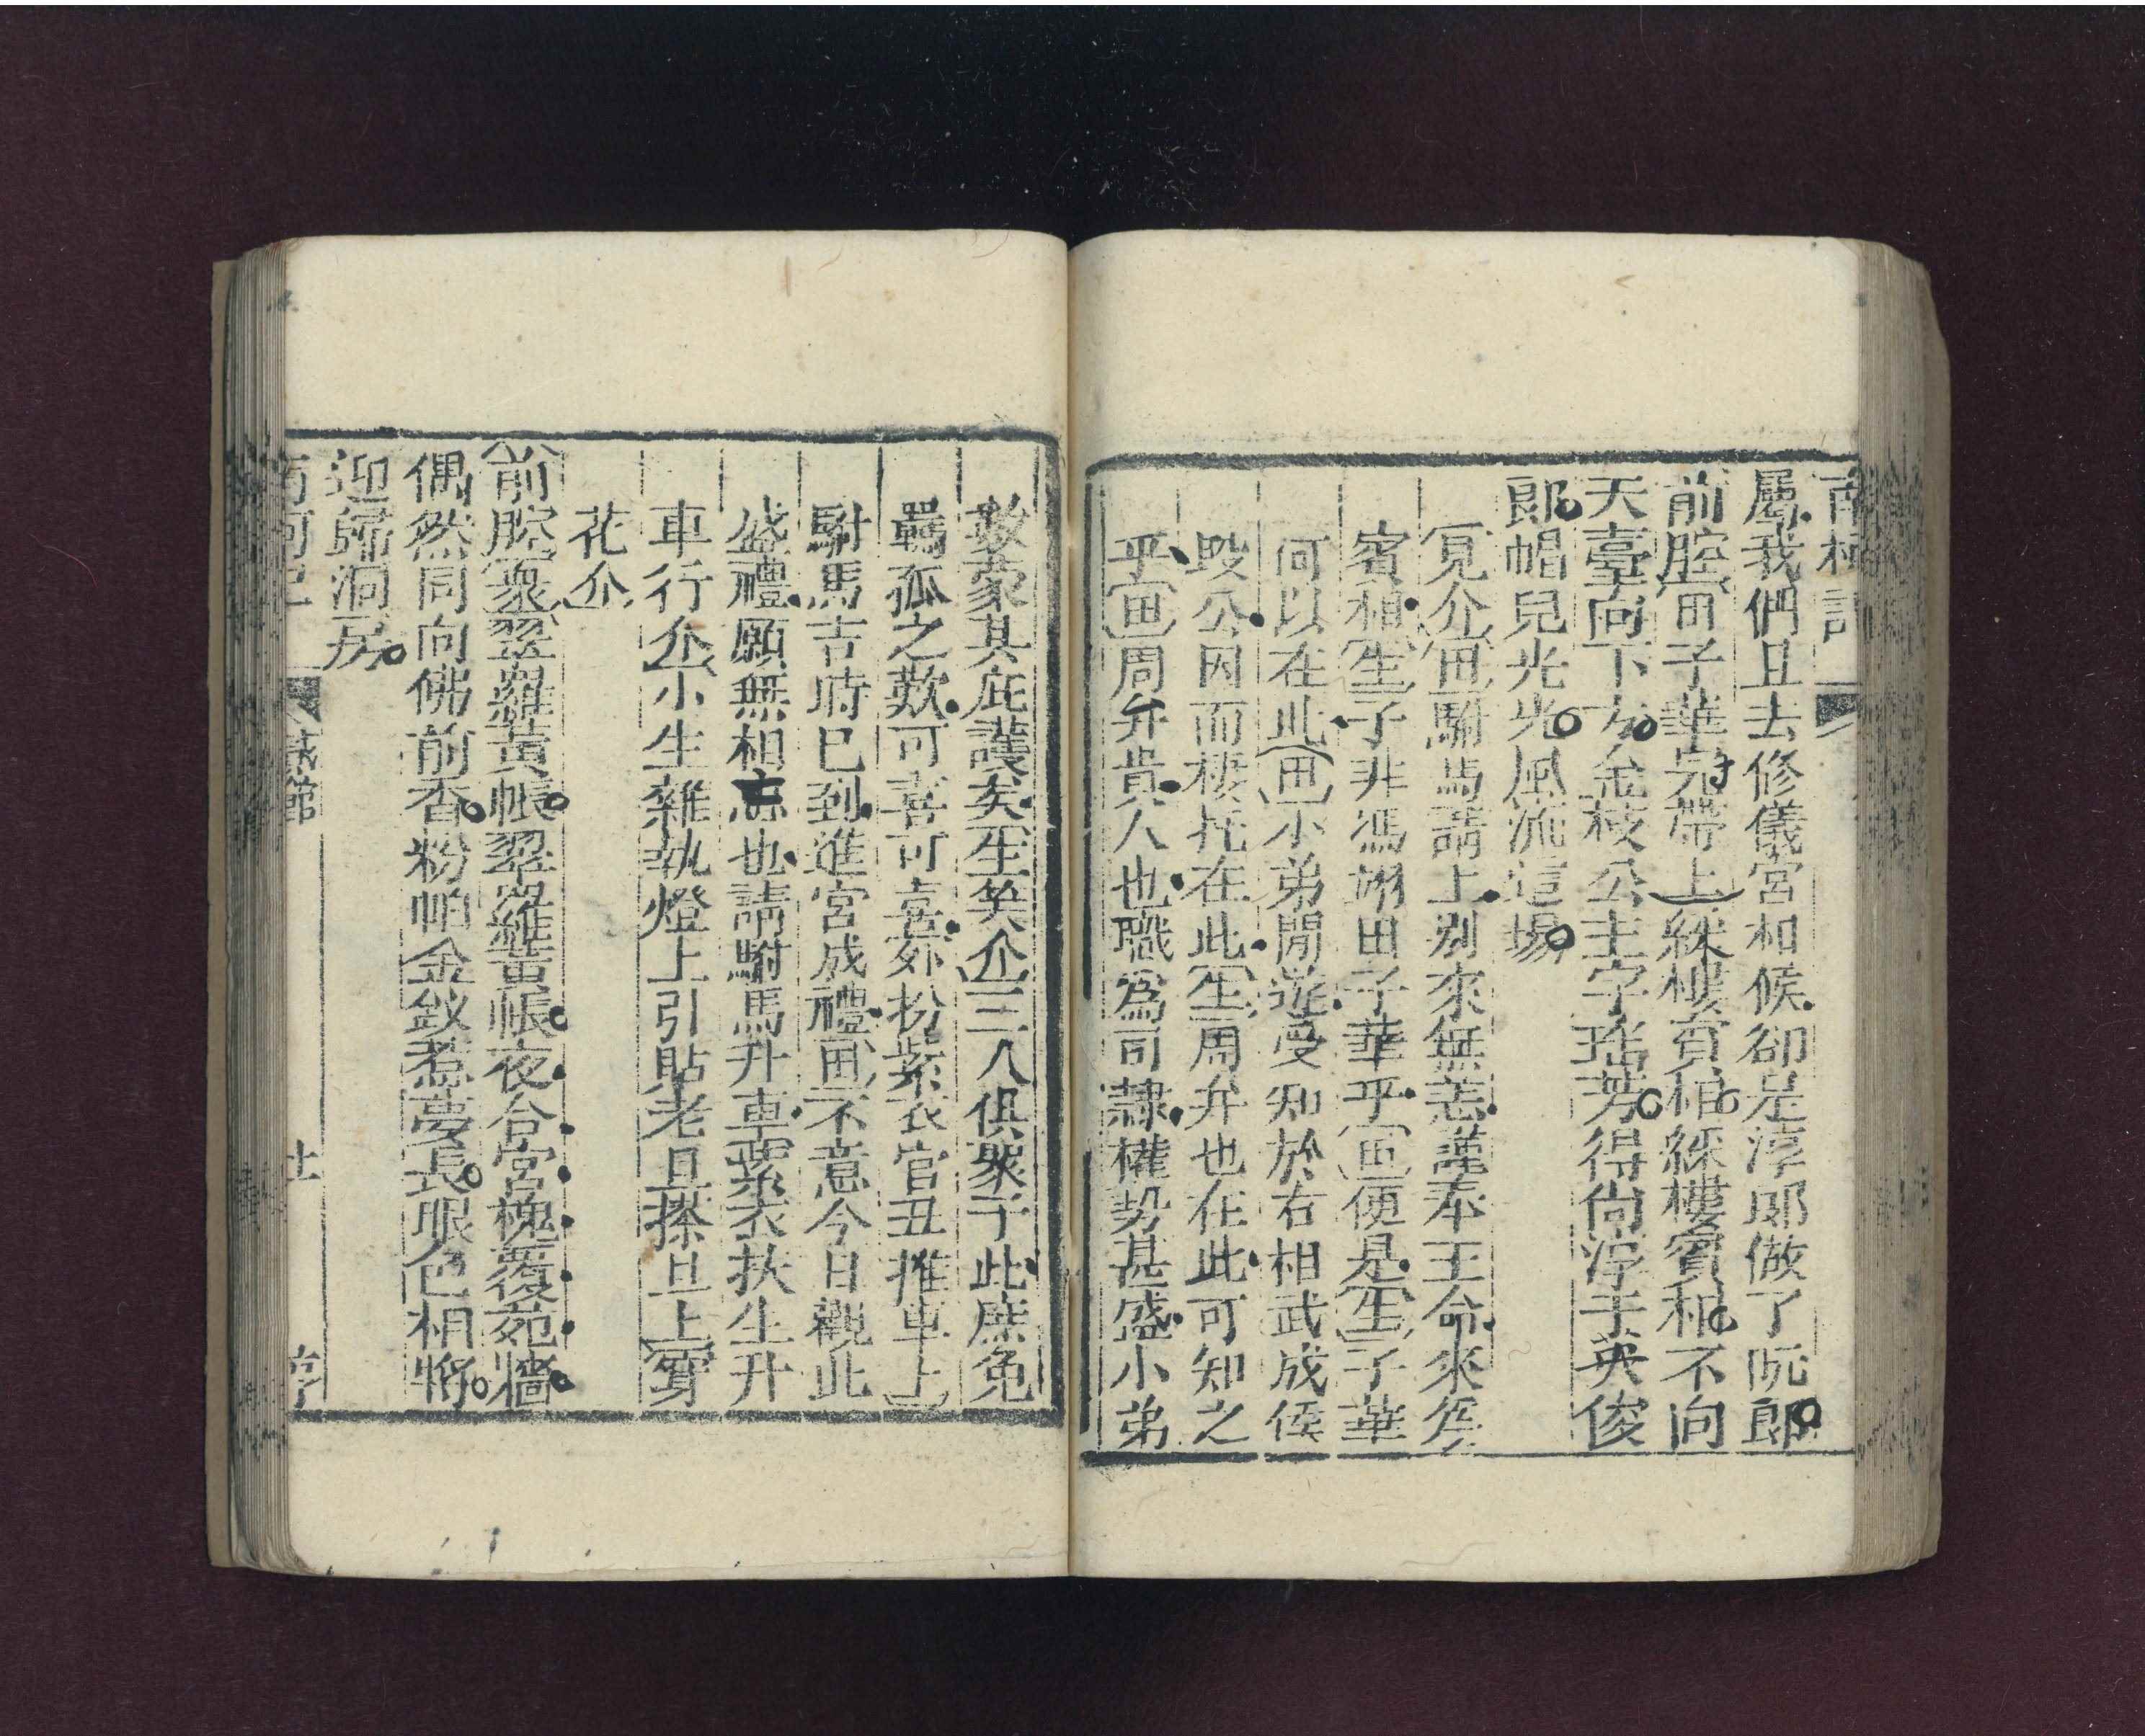 南柯記
屬我們且去修儀宮相候卻是淳郎做了阮郎
前腔田子華冠帶上綵樓賓相綵樓賓相不向
天臺向下方金枝公主字瑤芳得尚淳于英俊
郎帽兒光光風流這場
見介田駙馬請上別來無恙謹奉王命來爲
賓相生子非馮翊田子華乎田便是生子華
何以在此田小弟閒遊受知於右相武成侯
叚公因而棲托在此生周弁也在此可知之
乎田周弁貴人也職爲司隷權勢甚盛小弟
數蒙其庇護矣生笑介三人俱聚于此庶免
羈孤之歎可喜可喜外扮紫衣官丑推車上
駙馬吉時已到進宮成禮田不意今日觀此
盛禮願無相忘也請駙馬升車紫衣扶生升
車行介小生雜執燈上引貼老旦搽旦上寶
花介
前腔衆翠羅黃帳翠羅黃帳夜合宮槐覆苑牆
偶然同向佛前香粉帕金釵惹夢長眼色相將
迎歸洞房
南柯記 上